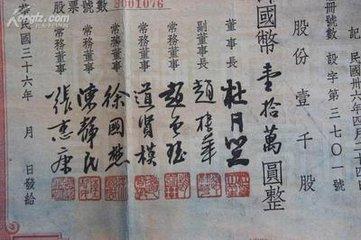 記 民國卅六年四月二
冊號數 設字第三七〇一號
股份壹千股
國幣壹拾萬圓整
董事長 杜月笙
副董事長 趙棣華
常務董事
常務董事 賢模
常務董事 徐國懋
常務董事 陳靜民
常務董事 張惠康
票號數 3001076
民國三十六年 月 日發給